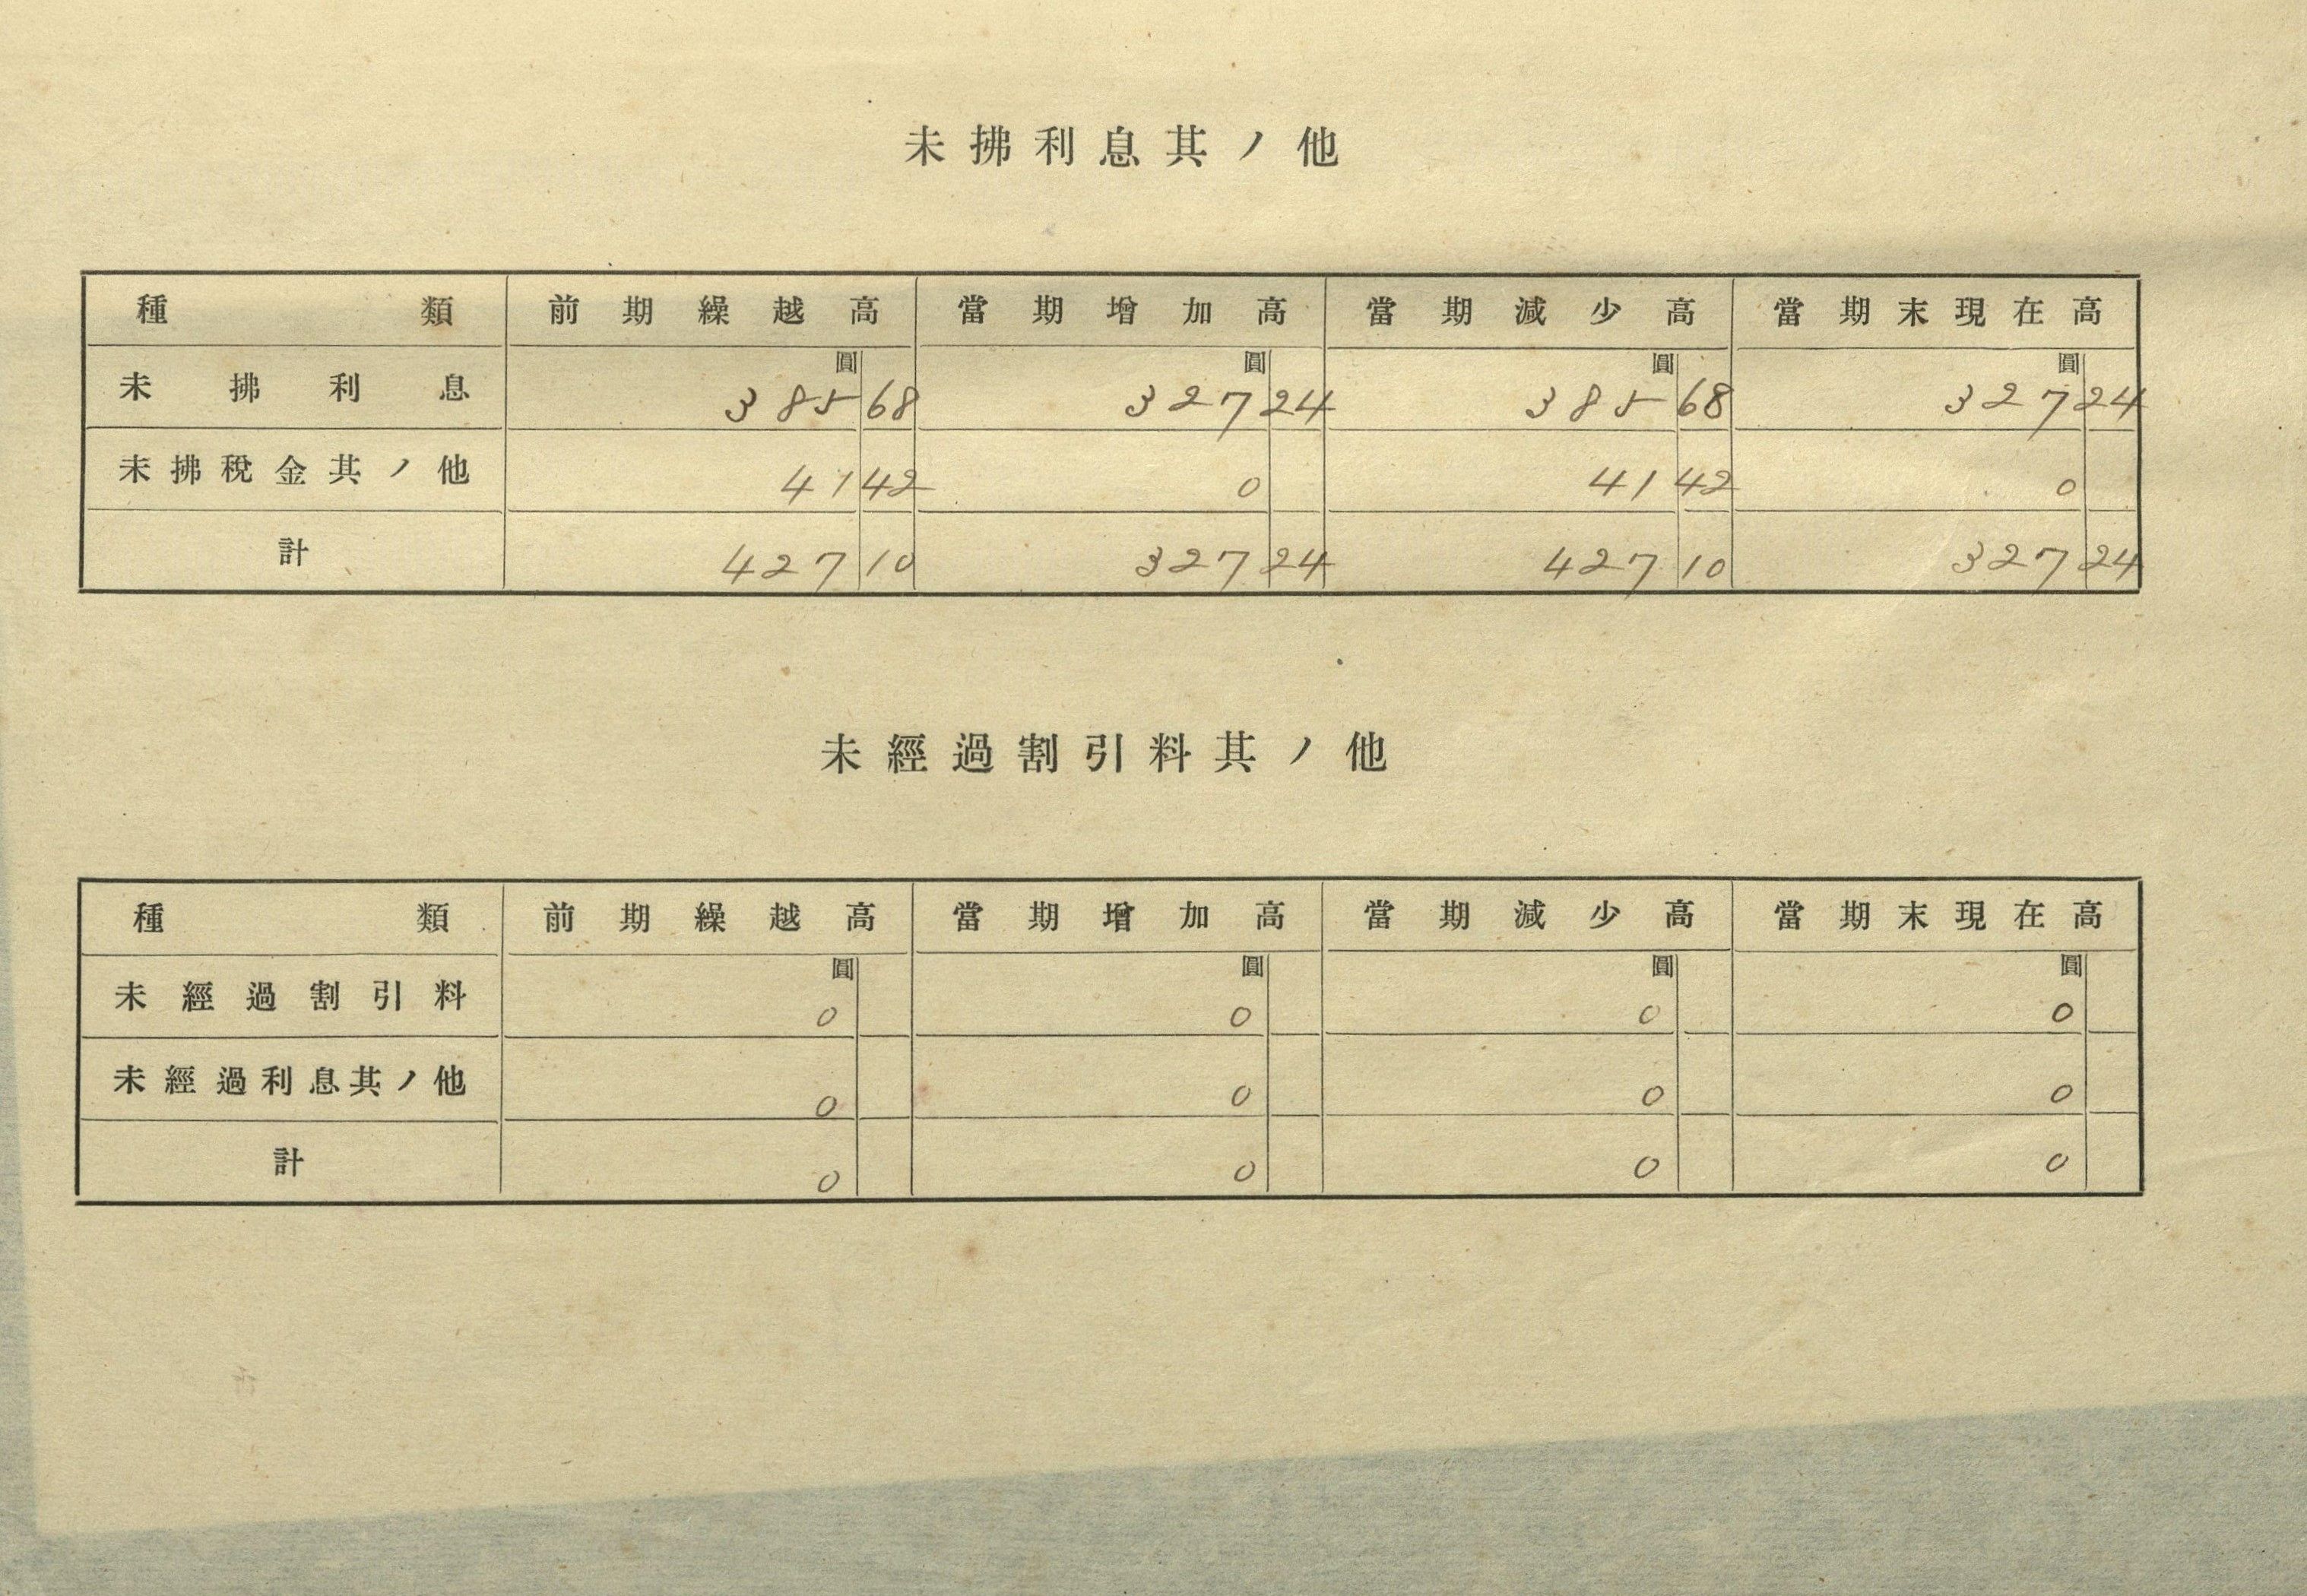 未拂利息其ノ他
種類 前期繰越高 當期增加高 當期減少高 當期末現在高
圓 圓 圓 圓
未拂利息 385 68 327 24 385 68 327 24
未拂稅金其ノ他 41 42 0 41 42 0
計 427 10 327 24 427 10 327 24
未經過割引料其ノ他
種類 前期繰越高 當期增加高 當期減少高 當期末現在高
圓 圓 圓 圓
未經過割引料 0 0 0 0
未經過利息其ノ他 0 0 0 0
計 0 0 0 0